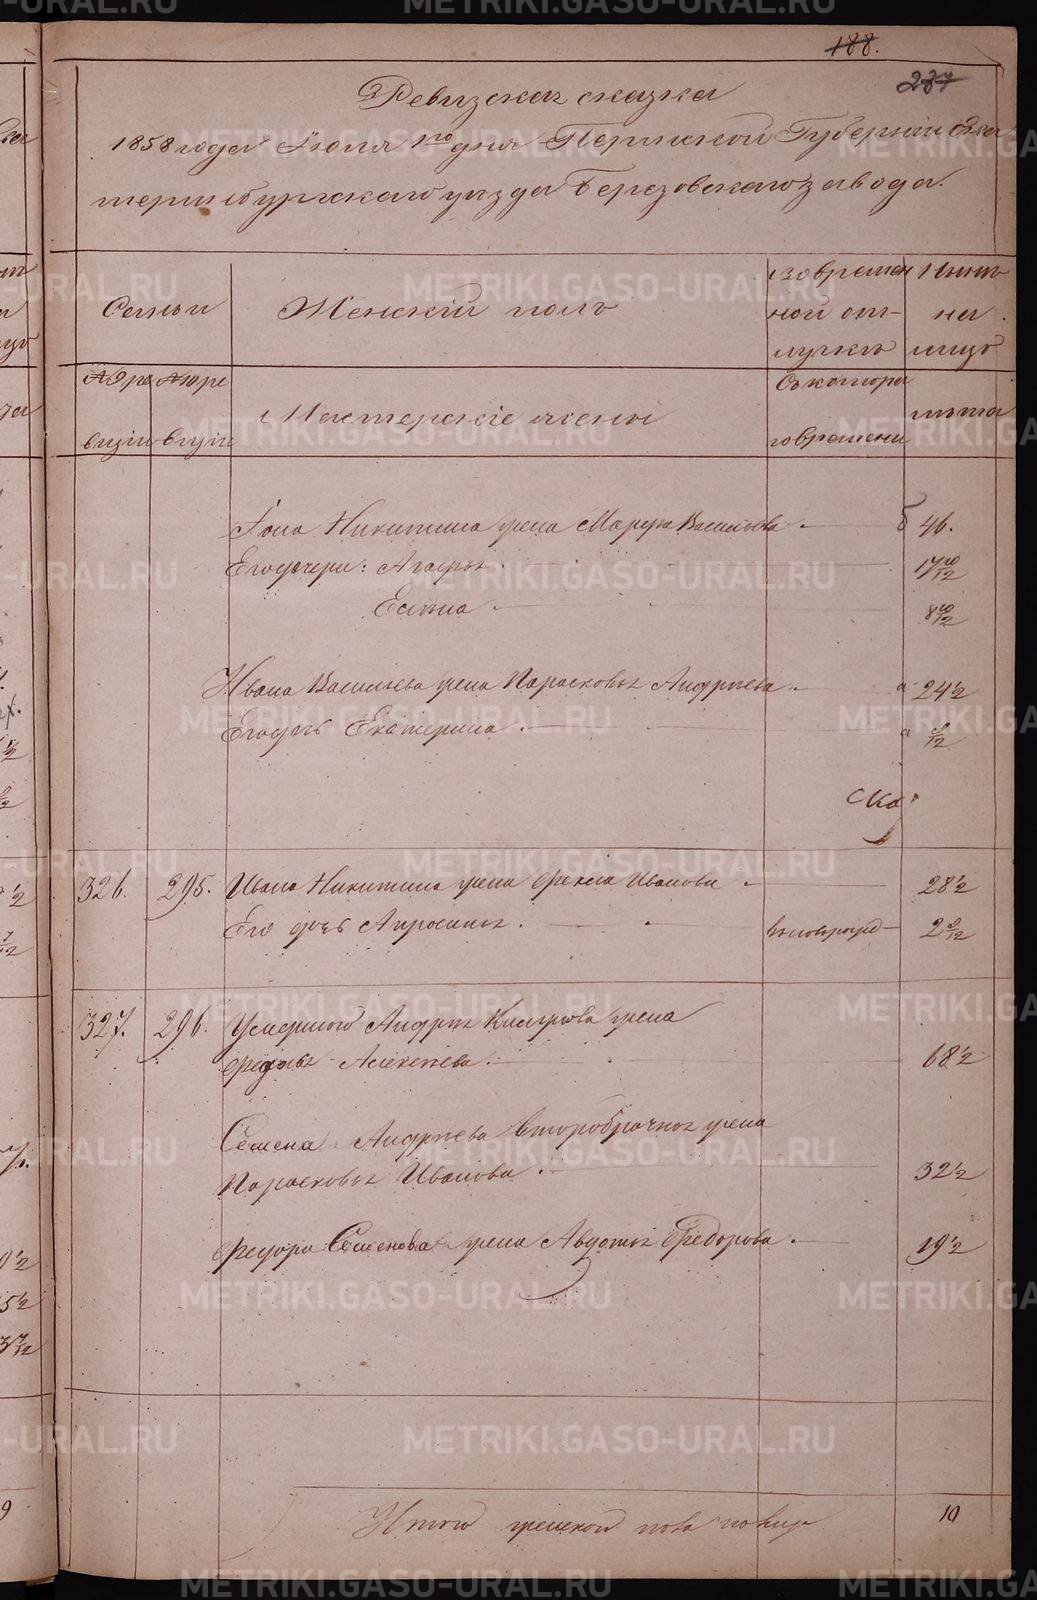 188.
237
Ревизская сказка
1858 года Іюля 1го дня Пермской Губерніи Ека
теринбургскаго уезда Березовскаго завода.
Семьи
Женскій полъ
во времен
ной от-
лучкѣ
Ныне
на
лицо
№ 9 ре
визіи
№ 10 ре
визіи
Мастерскіе жены
Съ котора
го времени
лѣта
Іона Никитина жена Марфа Васильева б 46.
Его дочери: Агафья 17 10/12
8 10/12
Ивана Васильева жена Парасковья Андреева а 24 1/2
Его дочь Екатерина а
Ска
326. 295. Ивана Никитина жена Иванова 28 1/2
Его дочь Апросинья новорожд 2
327. 296. Умершаго Андрея жена
Федосья Алексеева. 68 1/2
Семена Андреева второбрачная жена
Парасковья Иванова 32 1/2
Федора Семенова жена Авдотья Федорова 19 1/2
Итого женского пола налицо 10
METRIKI.GASO-URAL.RU